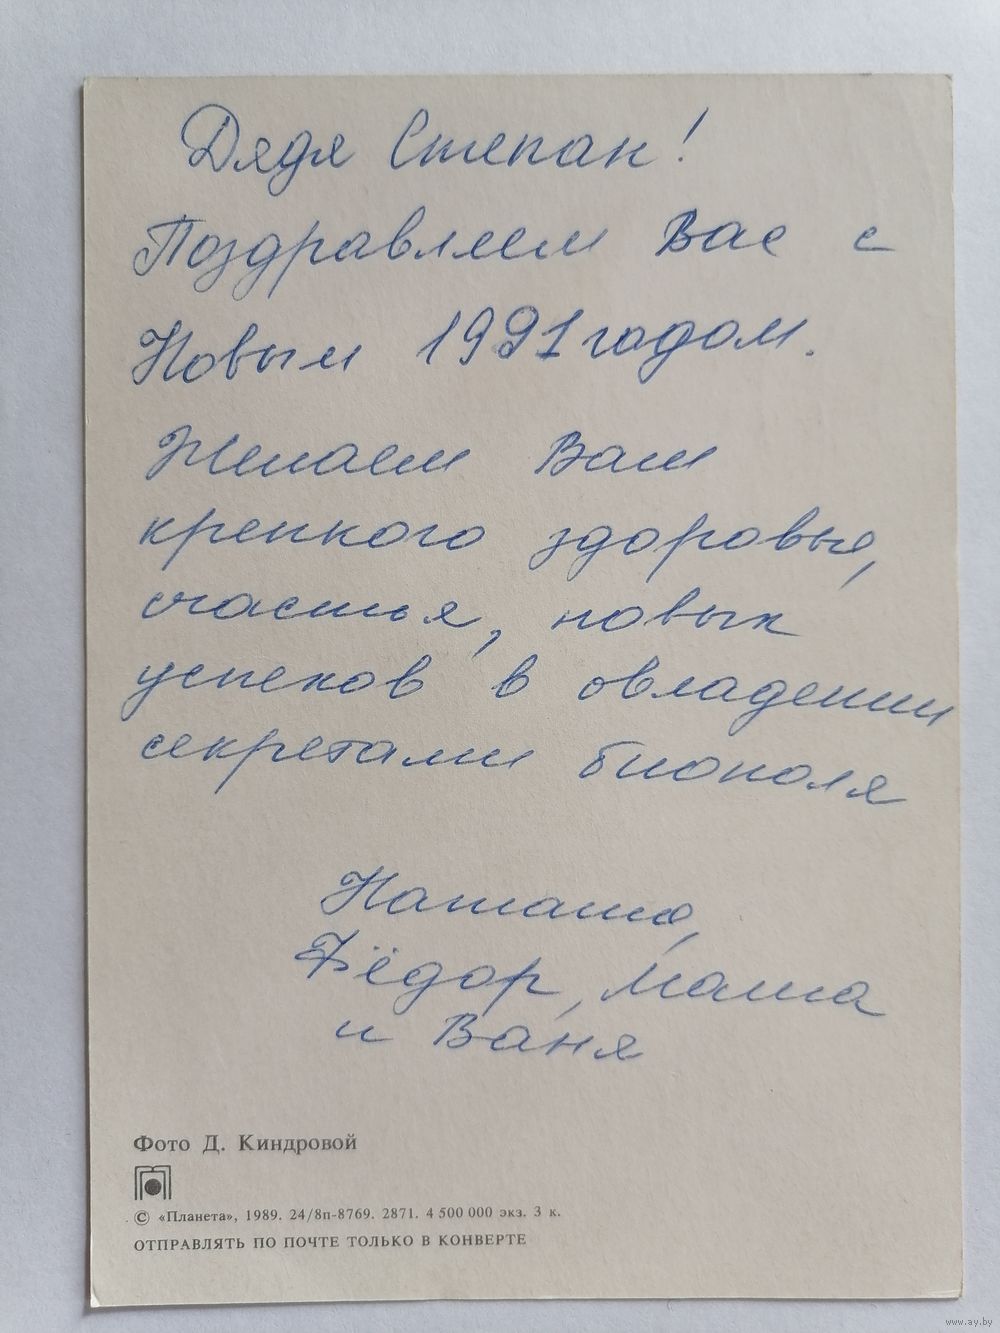 Дядя Степан!
Поздравляем Вас с
Новым 1991 годом.
Желаем Вам
крепкого здоровья,
счастья, новых
успехов в овладении
секретами биополя
Наташа,
Фёдор, Маша
и Ваня
Фото Д. Киндровой
© «Планета», 1989. 24/8п-8769. 2871. 4 500 000 экз. 3 к.
ОТПРАВЛЯТЬ ПО ПОЧТЕ ТОЛЬКО В КОНВЕРТЕ
www.ay.by